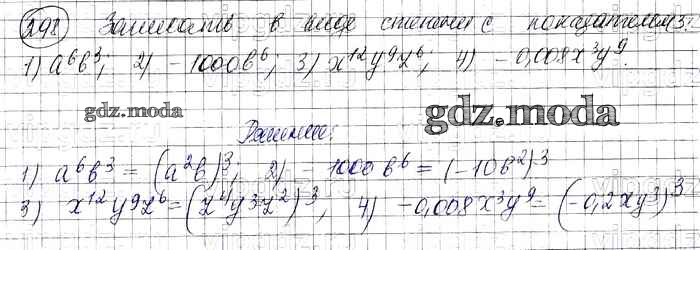 298 Записать в виде степени с показателем 3:
1) a⁶b³; 2) -1000b⁶; 3) x¹²y⁹z⁶; 4) -0,008x³y⁹.
gdz.moda gdz.moda
Решение:
1) a⁶b³ = (a²b)³; 2) -1000b⁶ = (-10b²)³
3) x¹²y⁹z⁶ = (z⁴y³z²)³, 4) -0,008x³y⁹ = (-0,2xy³)³